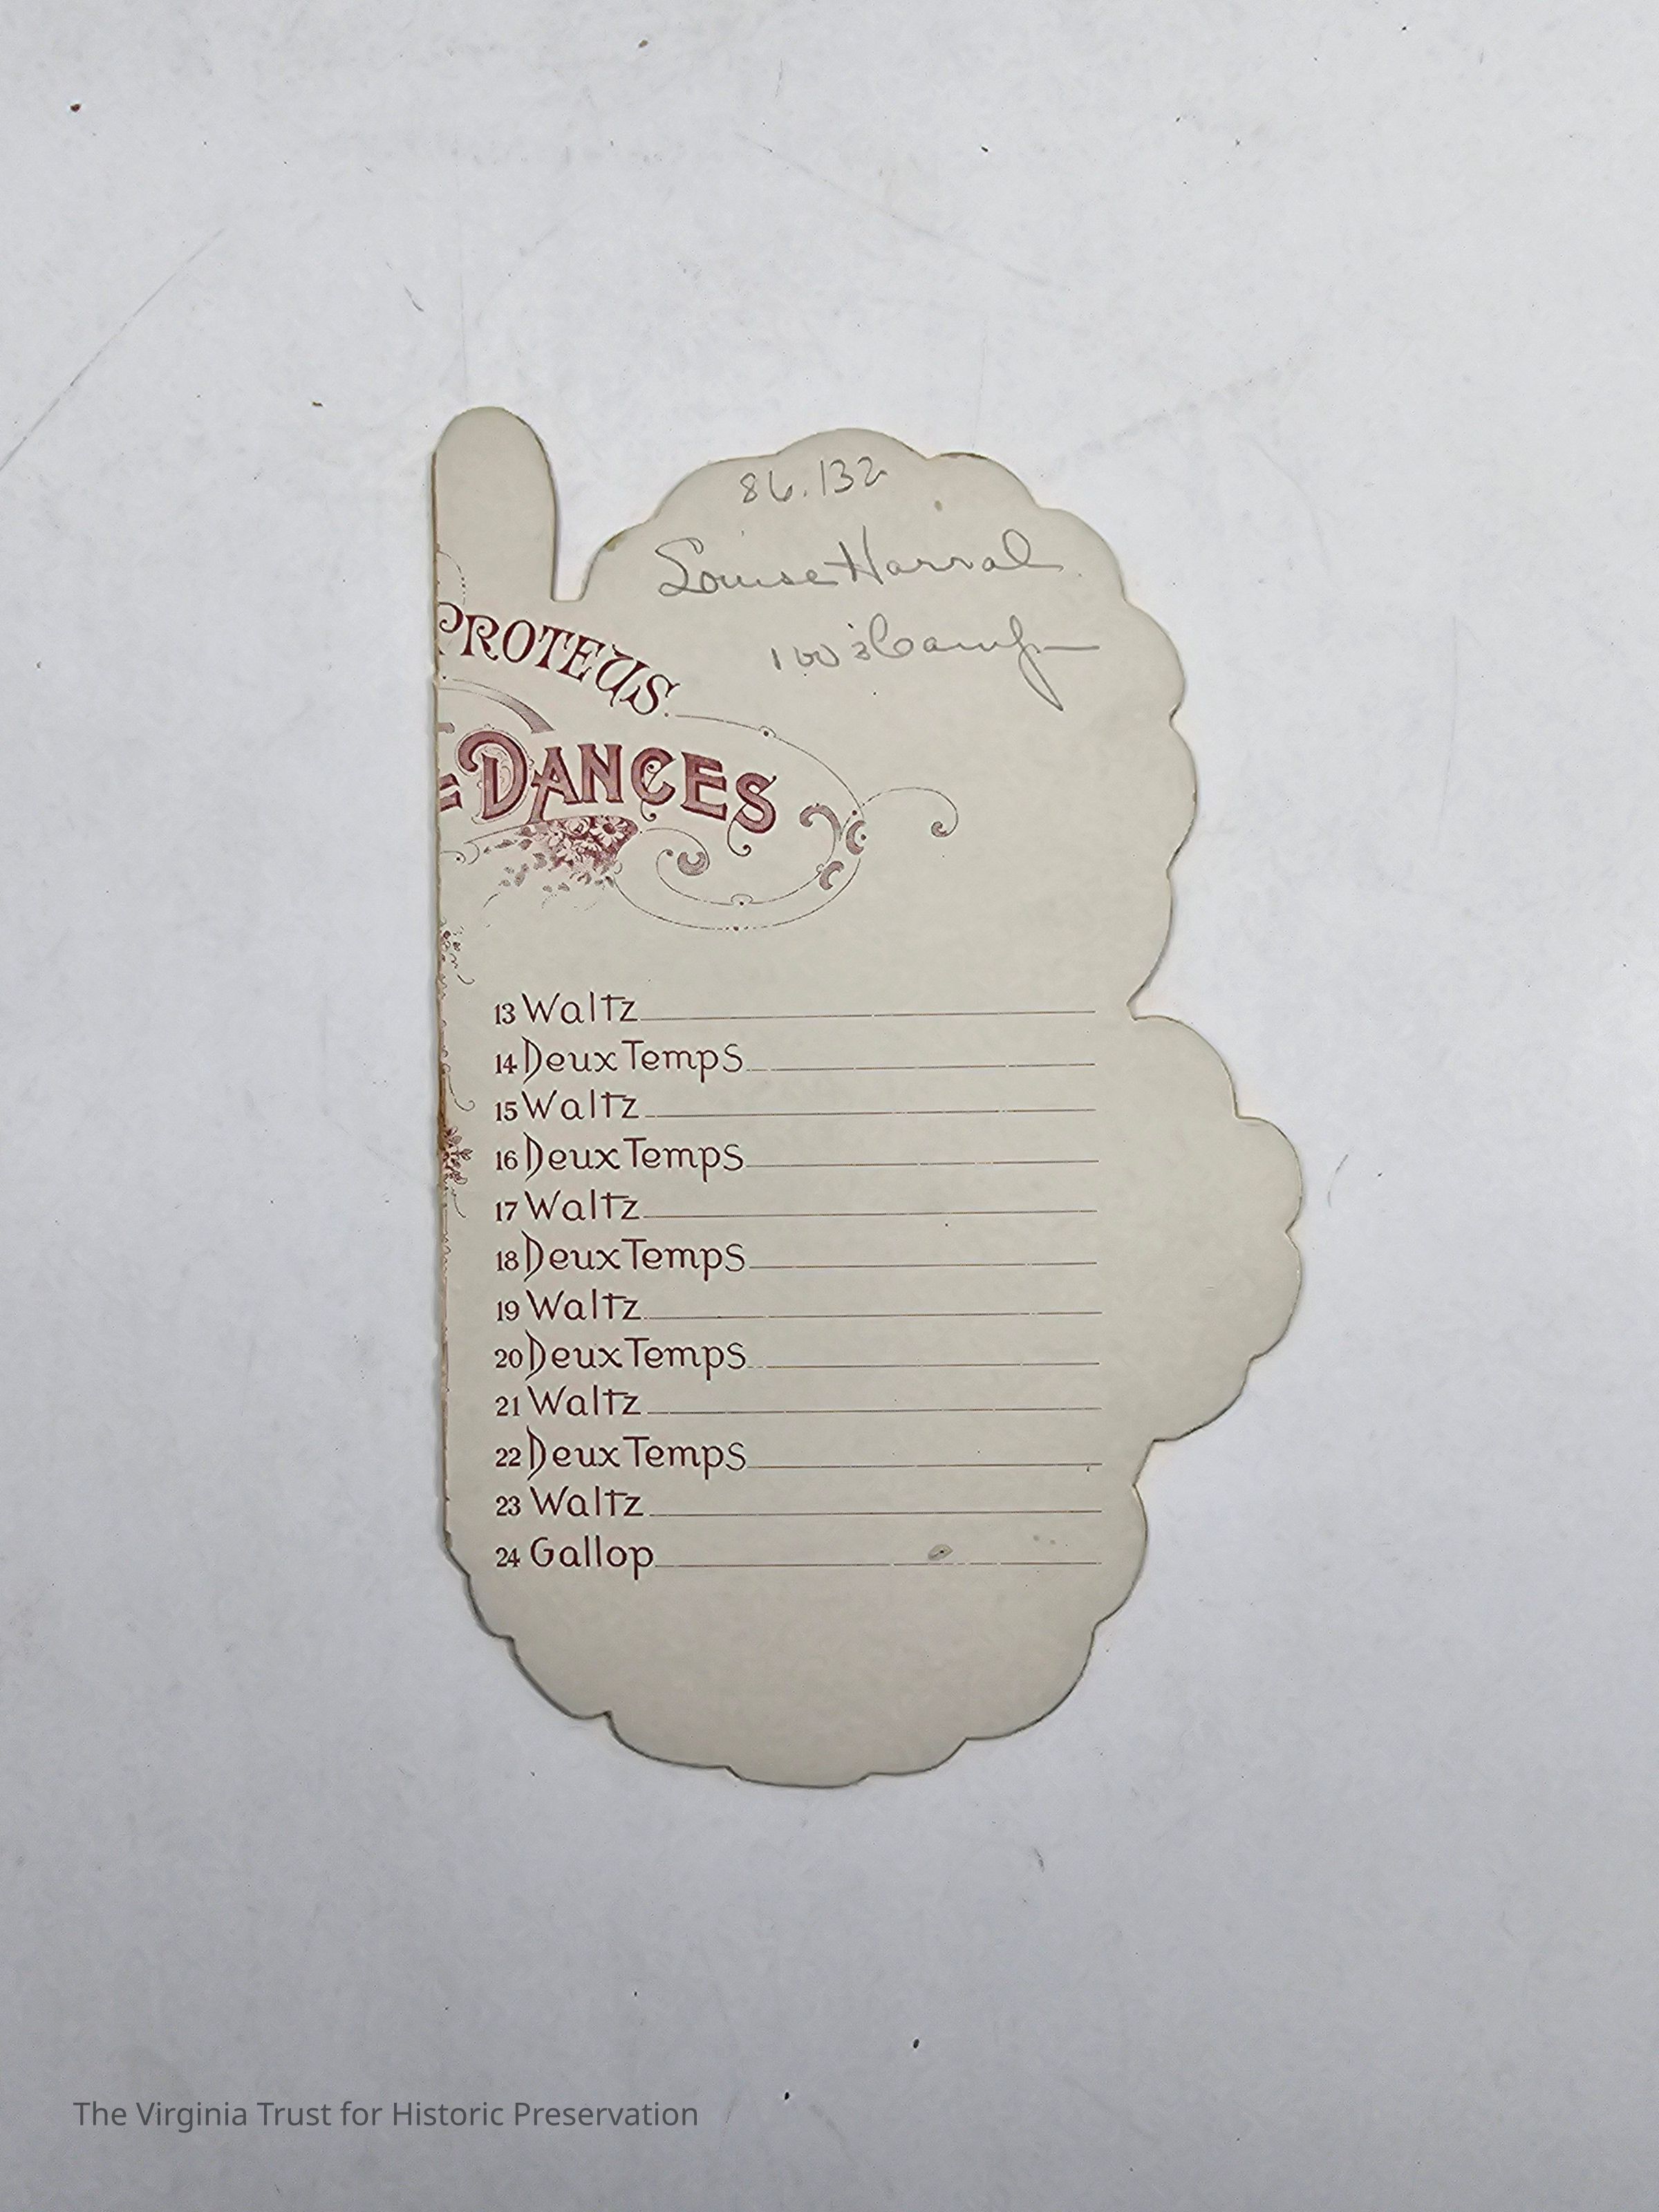 86.132
Louise Harral
1003 Camp
PROTEUS.
DANCES
13 Waltz
14 Deux Temps
15 Waltz
16 Deux Temps
17 Waltz
18 Deux Temps
19 Waltz
20 Deux Temps
21 Waltz
22 Deux Temps
23 Waltz
24 Gallop
The Virginia Trust for Historic Preservation